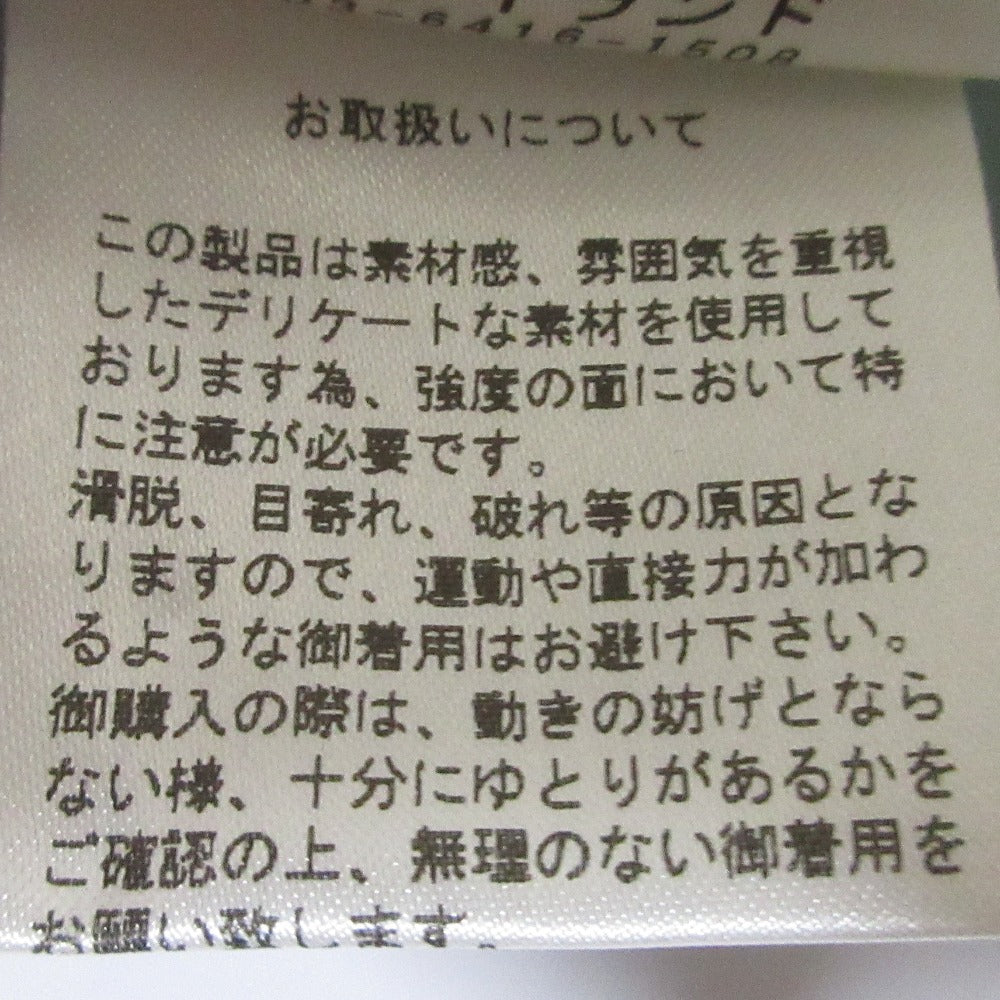 ランド
6416-1508
お取扱いについて
この製品は素材感、雰囲気を重視
したデリケートな素材を使用して
おります為、強度の面において特
に注意が必要です。
滑脱、目寄れ、破れ等の原因とな
りますので、運動や直接力が加わ
るような御着用はお避け下さい。
御購入の際は、動きの妨げとなら
ない様、十分にゆとりがあるかを
ご確認の上、無理のない御着用を
お願い致します。